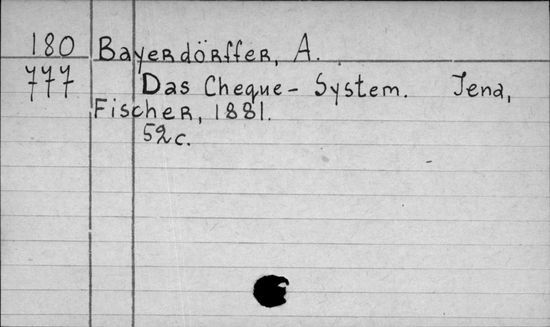 180 Bayerdörffer, A.
777 Das Cheque-System. Jena,
Fischer, 1881.
52 c.